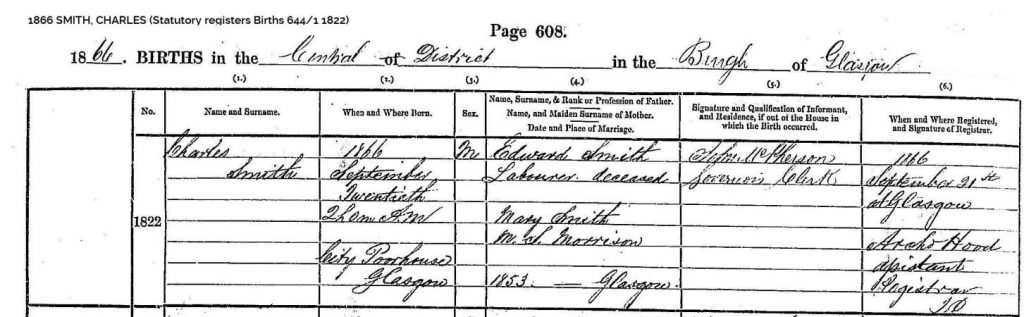 1866 SMITH, CHARLES (Statutory registers Births 644/1 1822)
Page 608.
1866. BIRTHS in the Central District of in the Burgh of Glasgow
(1.) (2.) (3.) (4.) (5.) (6.)
No.
Name and Surname.
When and Where Born.
Sex.
Name, Surname, & Rank or Profession of Father.
Name, and Maiden Surname of Mother.
Date and Place of Marriage.
Signature and Qualification of Informant,
and Residence, if out of the House in
which the Birth occurred.
When and Where Registered,
and Signature of Registrar.
1822
Charles
Smith
1866
September
Twentieth
2h 0m A M
City Poorhouse
Glasgow
M
Edward Smith
Labourer deceased
Mary Smith
M. S. Morrison
1853 — Glasgow
McPherson
Governors Clerk
1866
September 21st
at Glasgow
Archd Hood
Assistant
Registrar